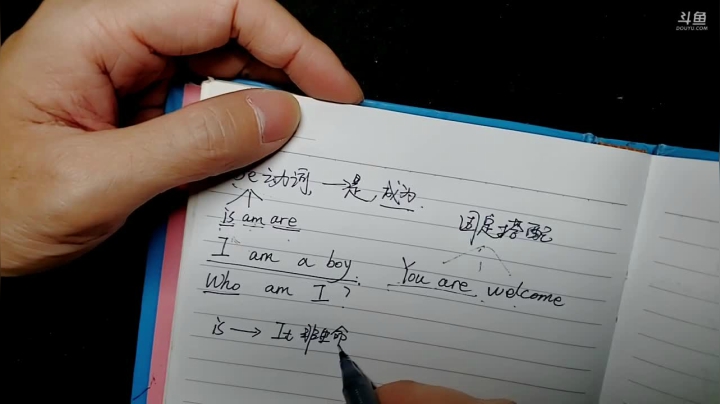 斗鱼
DOUYU.COM
be动词 一是 成为.
is am are
固定搭配
I am a boy.
You are welcome
Who am I?
is → It 非生命